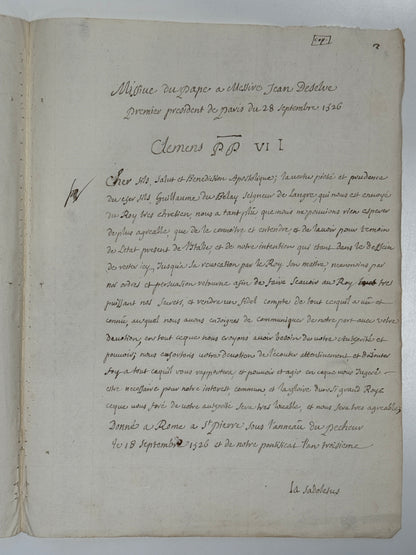 [cop.]
2
Missive du pape a Messire Jean Deselve
premier president de paris du 28 septembre 1526
Clemens PP VII
Cher fils, Salut et Benediction Apostolique; la vertu pieté et prudence
du cher fils Guillaume du Belay seigneur de Langre qui nous est envoyé
du Roy tres chretien, nous a tant plu que nous ne pouvions rien esperer
de plus agreable que de le connoitre et entendre et de l'avoir pour temoin
de l'etat present de l'Italie, et de notre intention qui etant dans le dessein
de rester icy, jusqu'a sa revocation par le Roy son maitre, neanmoins par
nos ordres et persuation retourne afin de faire scavoir au Roy tres
puissant nos secrets, et rendre un fidel compte de tout cequil a vu et
connu, auquel nous avons enjoigne de communiquer de notre part avec votre
devotion, en tout ceque nous croyons avoir besoin de votre authorité et
pouvoir; nous exhortons votre devotion de l'écouter attentivement, et d'ajouter
foy a tout cequil vous rapportera, et pouvoir et agir en ceque vous
estre necessaire pour notre interest commun et la gloire d'un si grand Roy;
ceque nous de votre authorité sera tres louable, et nous sera tres agreable,
Donné a Rome a St pierre sous l'anneau du pecheur
le 18 septembre 1526 et de notre pontificat l'an troisieme
Ia Sadoletus